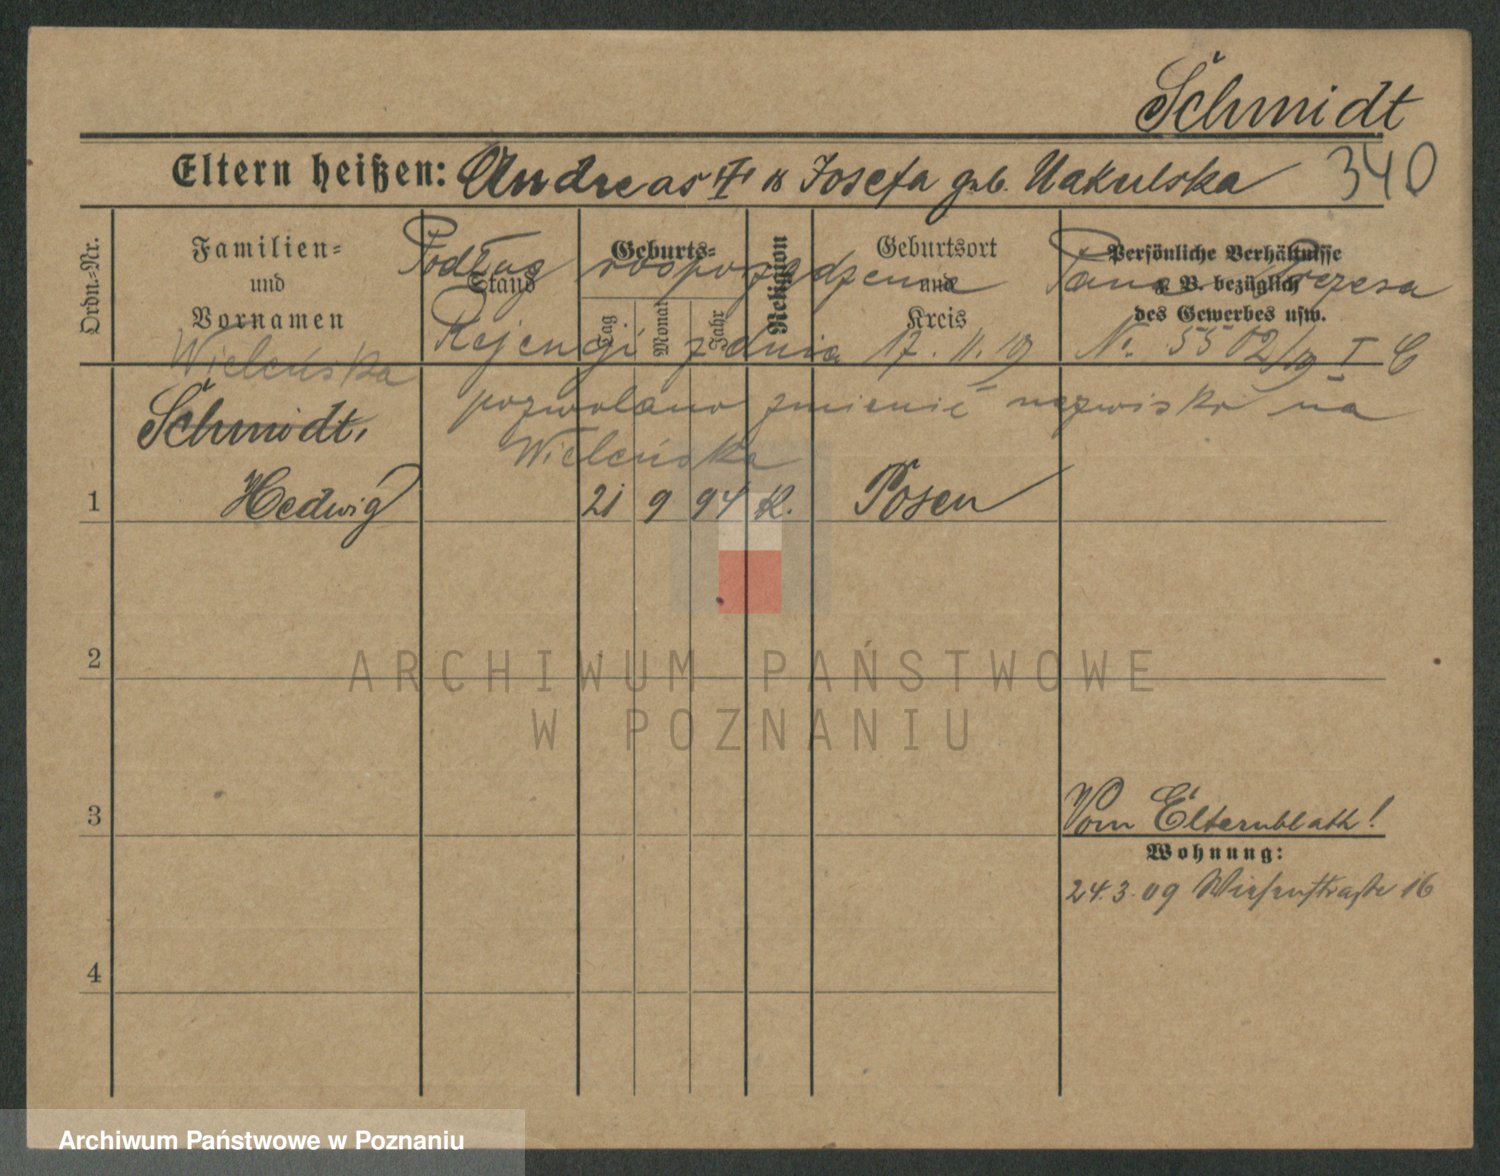 Schmidt
Eltern heißen: Andreas u Josefa geb. Nakulska 340
Ordn.-Nr.
Familien-
und
Vornamen
Stand
Geburts-
Tag
Monat
Jahr
Religion
Geburtsort
und
Kreis
Persönliche Verhältnisse
z. B. bezüglich
des Gewerbes usw.
Podług rosporządzenia Pana Prezesa
Rejencji z dnia 17. 11. 19 No. 5502/19 I C
pozwolano zmienić nazwisko na
Wieleńska
Wieleńska
Schmidt,
1 Hedwig 21 9 94 K. Posen
2
3
4
Vom Elternblatt!
Wohnung:
24.3.09 Wiesenstraße 16
ARCHIWUM PAŃSTWOWE
W POZNANIU
Archiwum Państwowe w Poznaniu